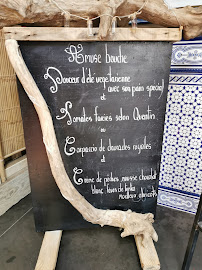 Amuse bouche
Douceur d'été végétarienne
avec son pain spécial
et
Tomates farcies selon Quentin
ou
Carpaccio de daurades royales
et
Crème de pêches mousse chocolat
blanc
moelleux abricots